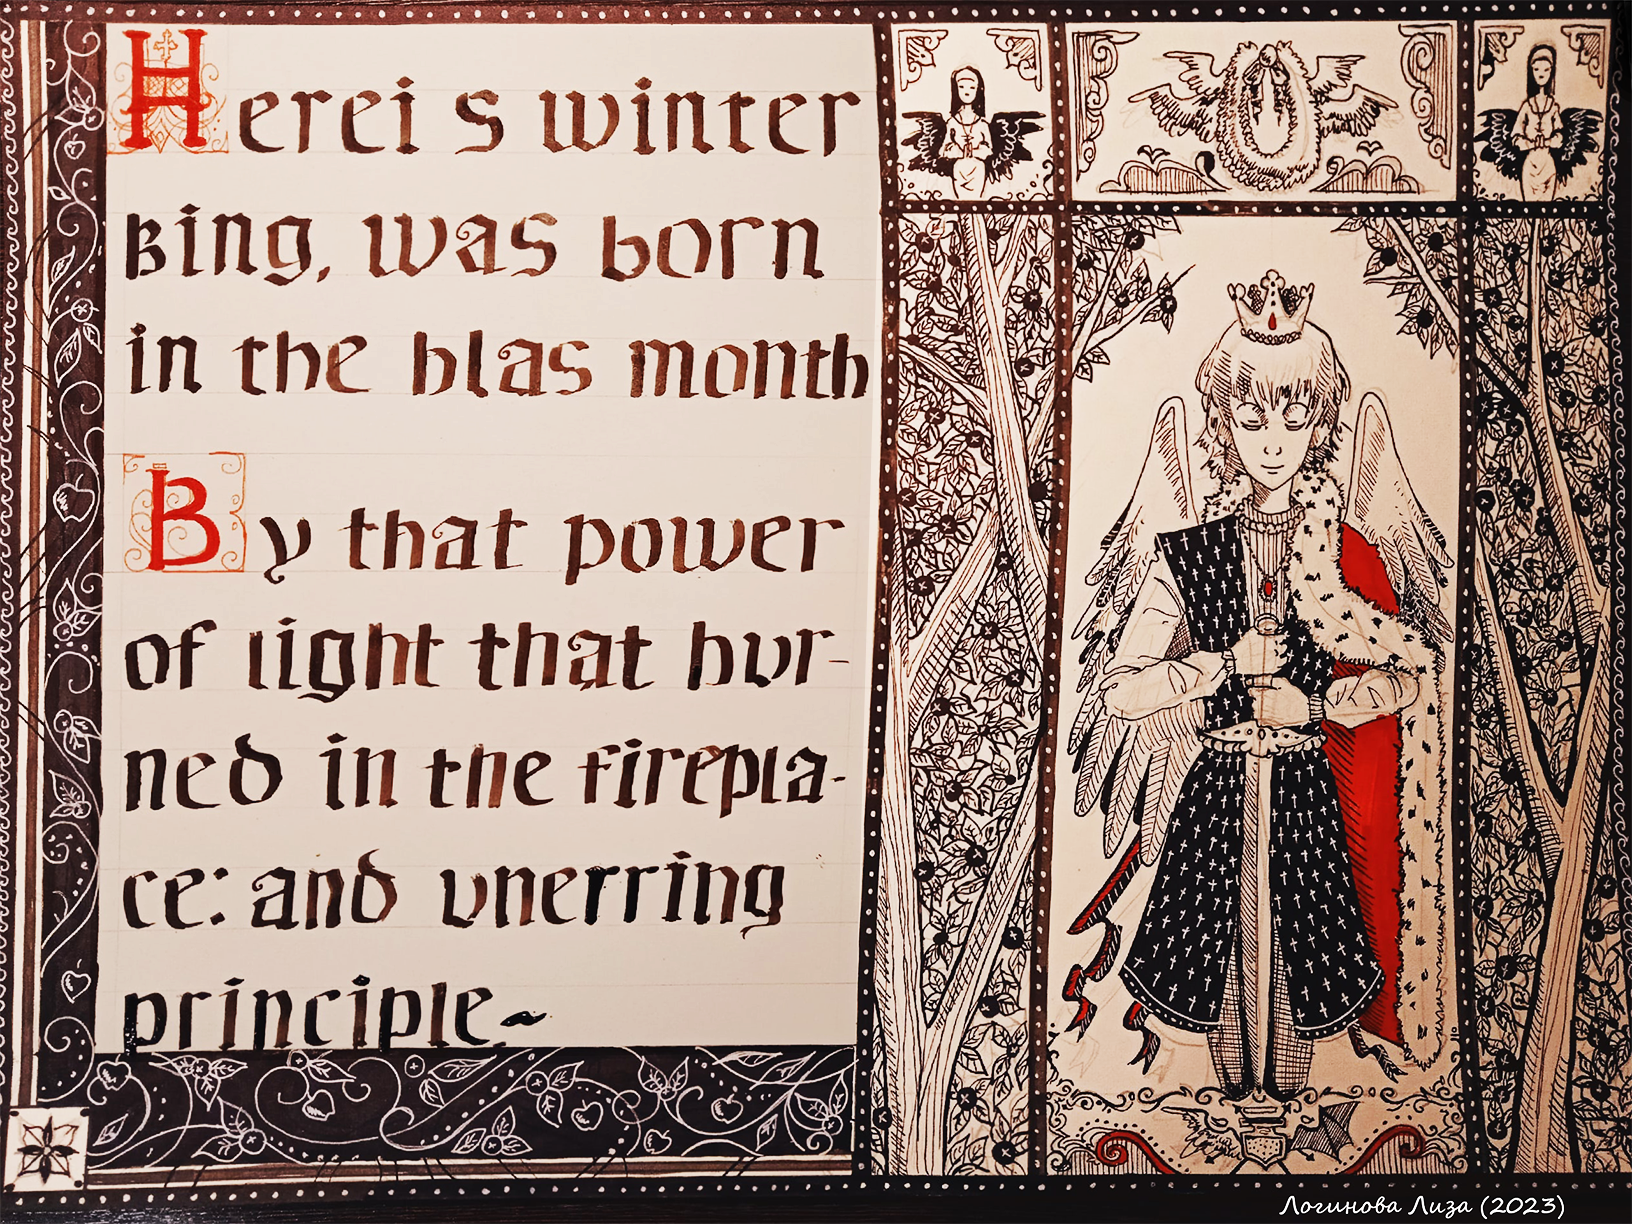 Herei s winter
King, was born
in the blas month
By that power
of light that bur-
ned in the firepla-
ce: and unerring
principle.~
Логинова Лиза (2023)